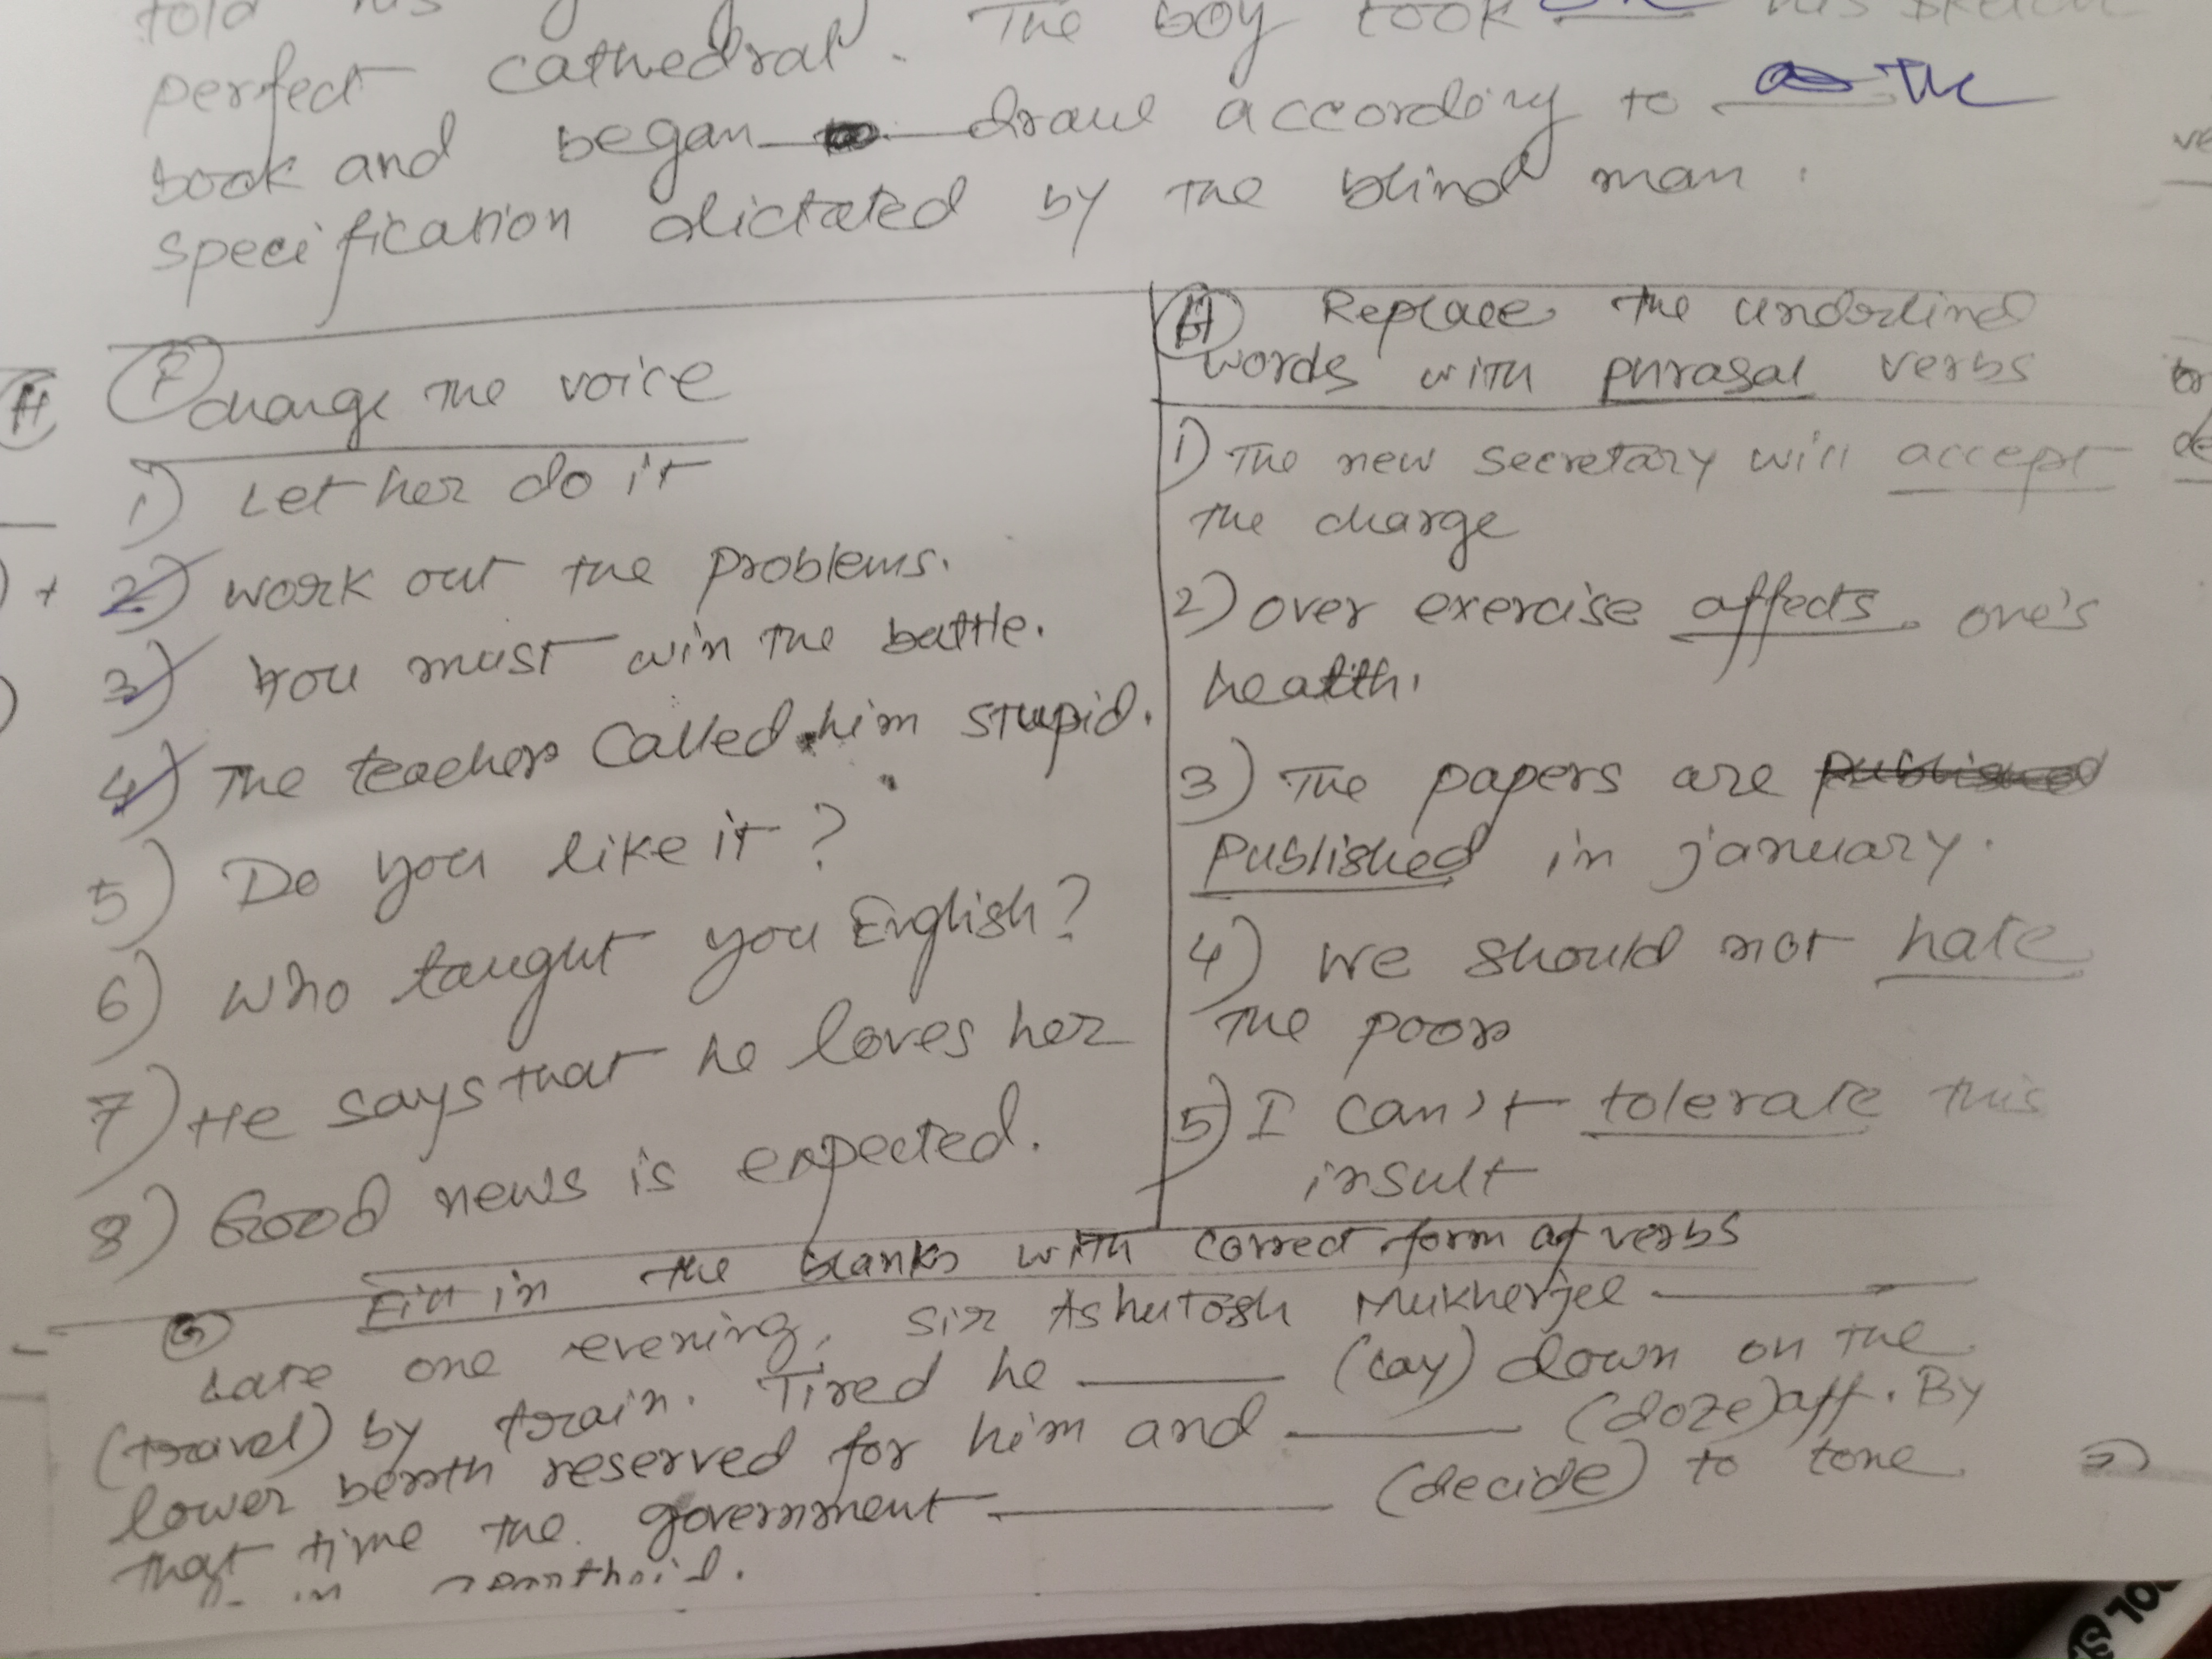 told his The boy took his sketch
perfect cathedral.
book and began draw according to the
specification dictated by the blind man.
F change the voice
1) Let her do it
2) work out the problems.
3) You must win the battle.
4) The teacher called him stupid.
5) Do you like it?
6) Who taught you English?
7) He says that he loves her
8) Good news is expected.
H Replace the underlined
words with phrasal verbs
1) The new secretary will accept
the charge
2) over exercise affects one's
health.
3) The papers are published
published in january.
4) We should not hate
the poor
5) I can't tolerate this
insult
G Fill in the blanks with correct form of verbs
Late one evening, Sir Ashutosh Mukherjee ____
(travel) by train. Tired he ____ (lay) down on the
lower berth reserved for him and ____ (doze) off. By
that time the government ____ (decide) to tone
in
H